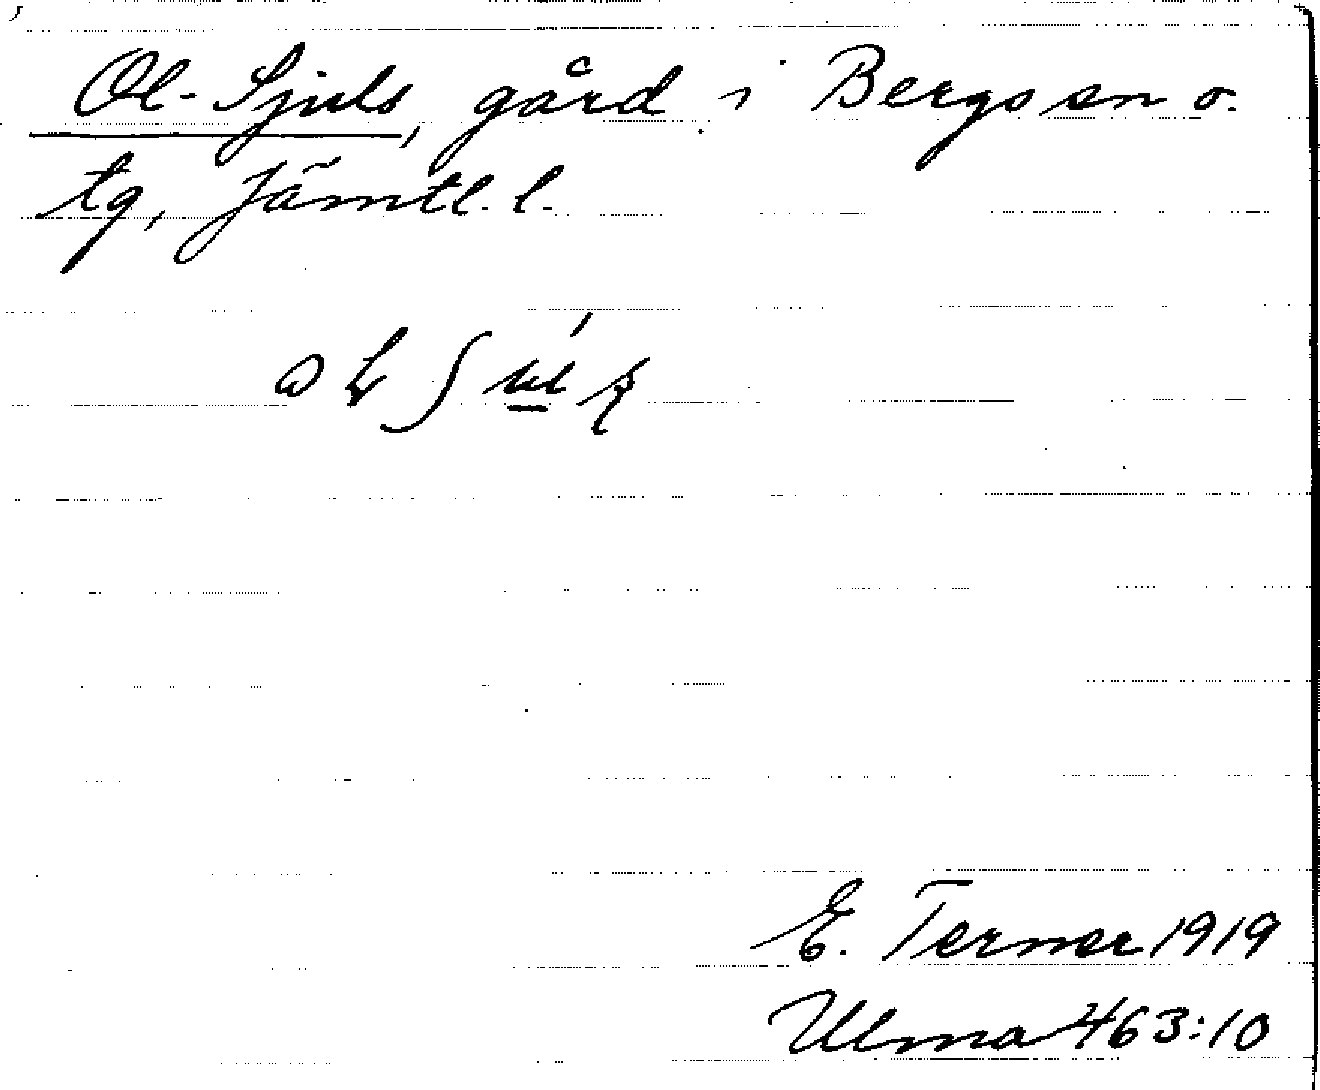 Ol-Sjuls, gård i Bergs sn o.
tg, Jämtl. l.
E. Terner 1919
Ulma 463:10